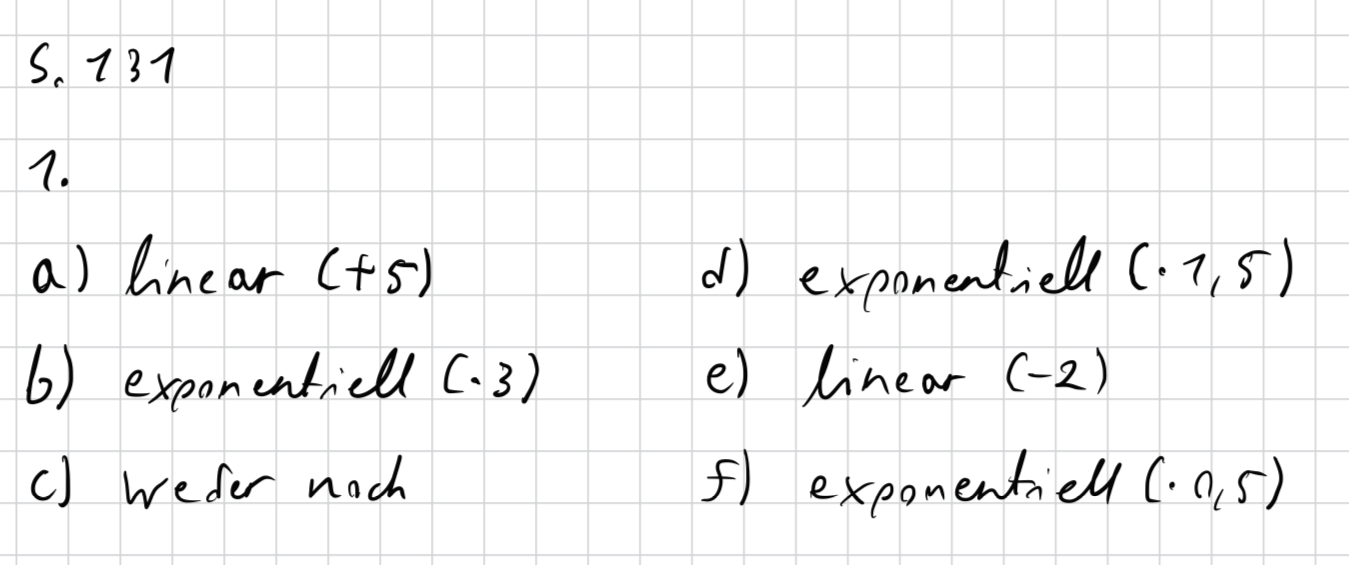 S. 131
1.
a) linear (+5)
b) exponentiell (·3)
c) weder noch
d) exponentiell (·1,5)
e) linear (-2)
f) exponentiell (·0,5)